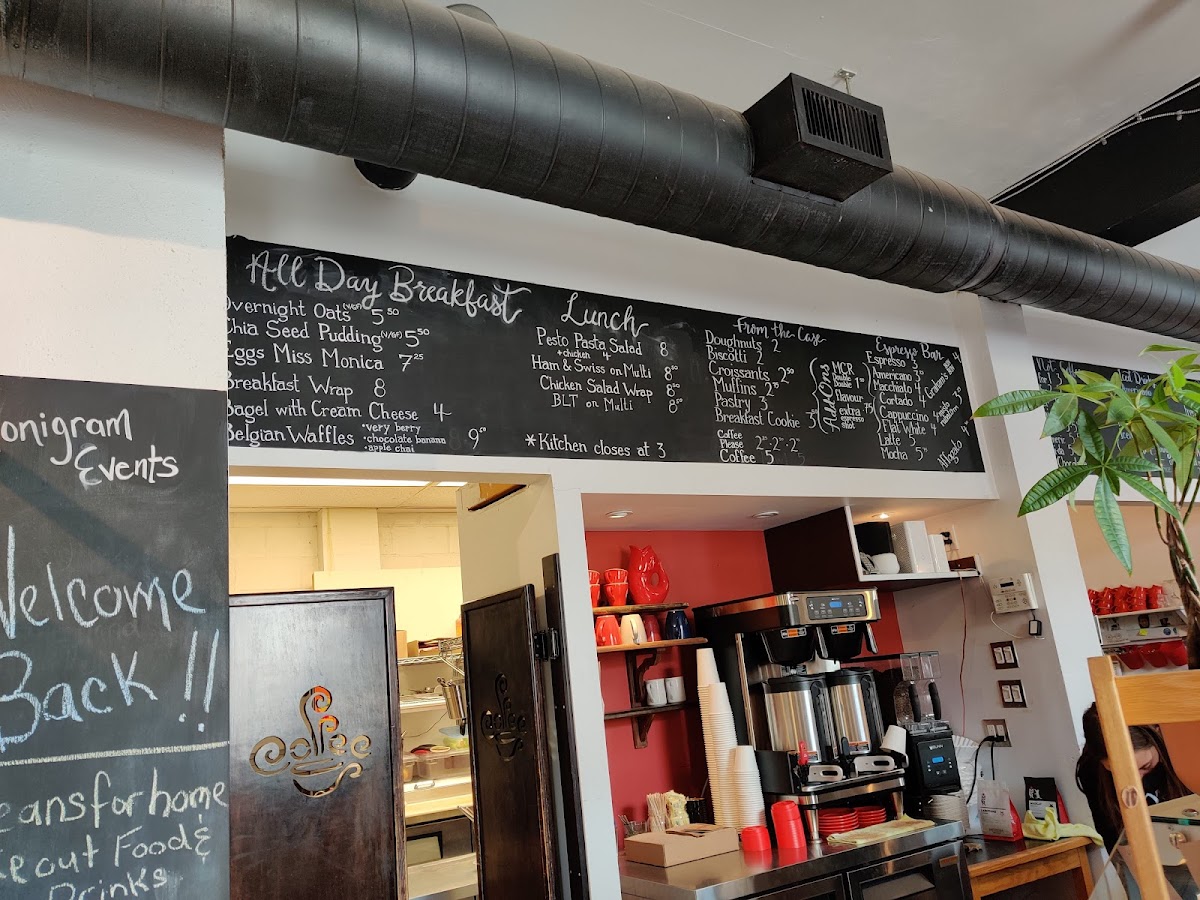 All Day Breakfast
Overnight Oats (v/GF) 5 50
Chia Seed Pudding (v/GF) 5 50
Eggs Miss Monica 7 25
Breakfast Wrap 8
Bagel with Cream Cheese 4
Belgian Waffles *very berry
*chocolate banana
*apple chai
9 50
Lunch
Pesto Pasta Salad 8
+chicken 4
Ham & Swiss on Multi 8 00
Chicken Salad Wrap 8 00
BLT on Multi 8 50
*Kitchen closes at 3
From the Case
Doughnuts 2
Biscotti 2
Croissants 2 50
Muffins 2 75
Pastry 3
Breakfast Cookie 3
Coffee
Please
Coffee 5
Add Ons
MCR
Double 1 00
flavour
extra .75
espresso
shot
Espresso Bar
Espresso 3
Americano 3
Macchiato 4
Cortado 4
Cappuccino 4
Flat White 4
Latte 5
Mocha 5
Affogato 4
onigram
Events
Welcome
Back !!
eans for home
out Food &
Drinks
coffee